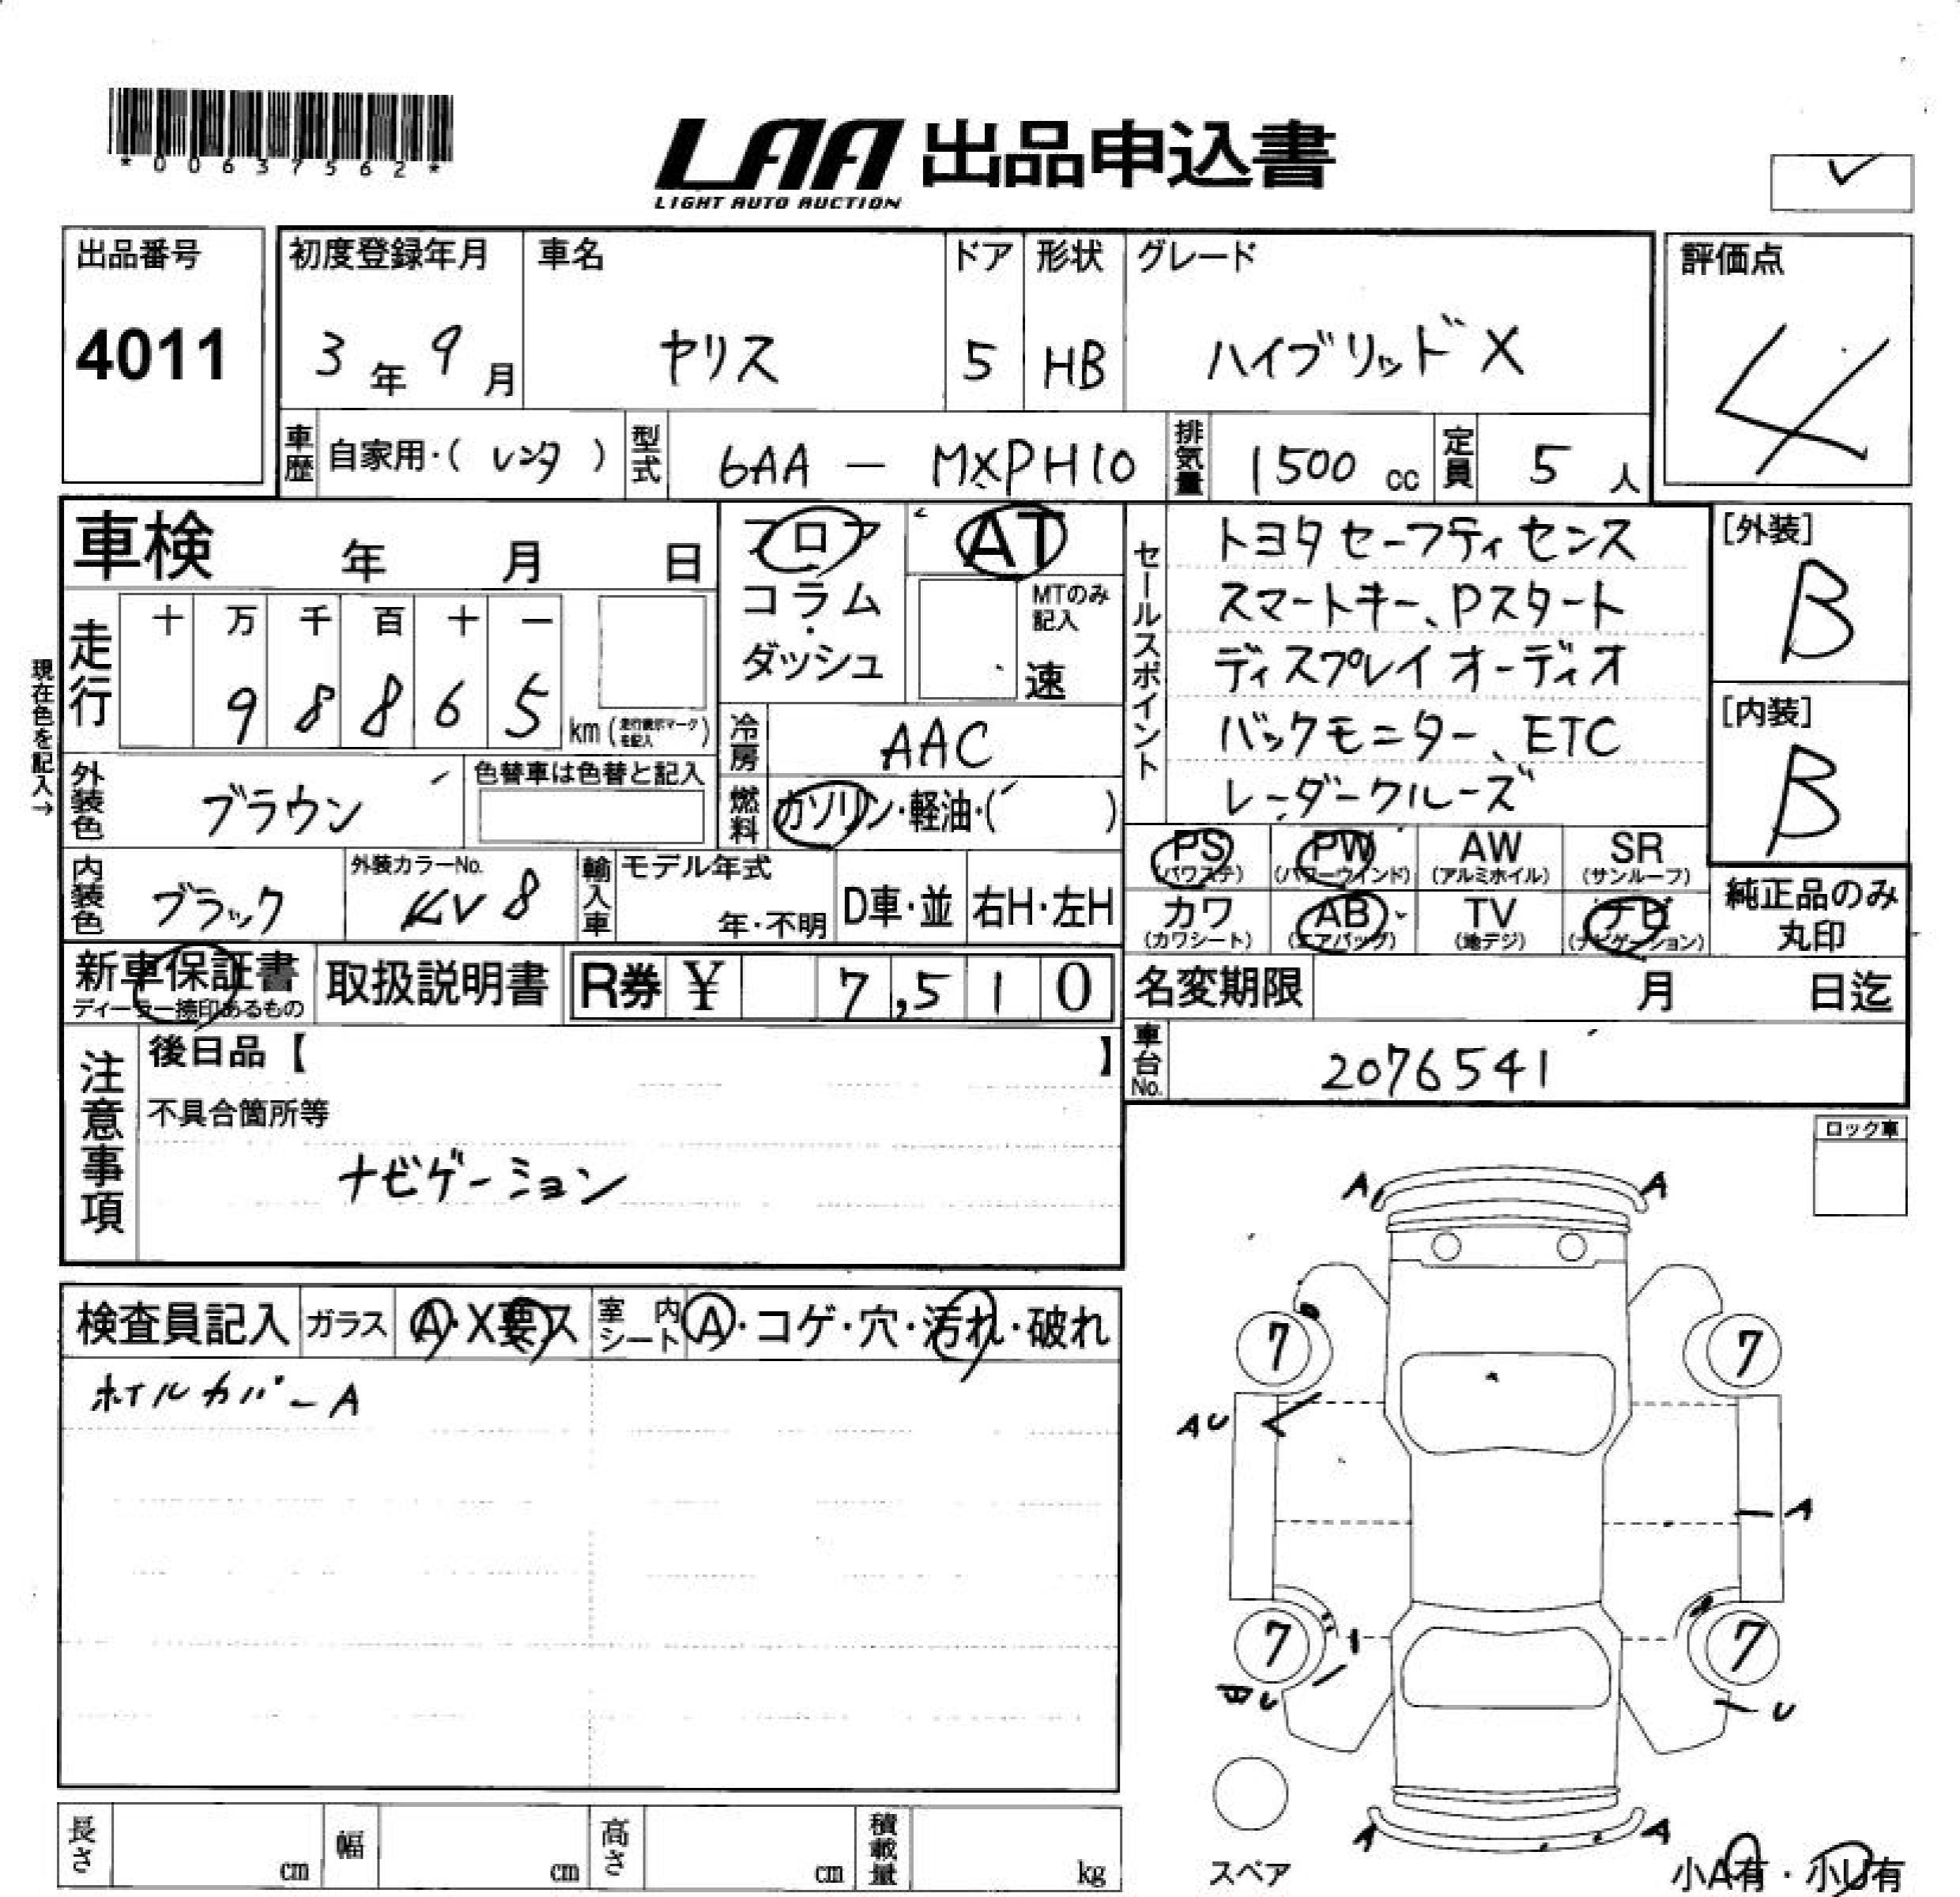 *00637562*
LAA 出品申込書
LIGHT AUTO AUCTION
出品番号
4011
初度登録年月
3年9月
車名
ヤリス
ドア
5
形状
HB
グレード
ハイブリッドX
評価点
4
車歴
自家用・(レンタ)
型式
6AA - MXPH10
排気量
1500cc
定員
5人
車検 年 月 日
走行
十 万 千 百 十 一
9 8 8 6 5 km
現在色を記入→
フロア
コラム
・
ダッシュ
AT
MTのみ
記入
速
冷房
AAC
燃料
ガソリン・軽油・( )
セールスポイント
トヨタセーフティセンス
スマートキー、Pスタート
ディスプレイオーディオ
バックモニター、ETC
レーダークルーズ
[外装]
B
[内装]
B
外装色
ブラウン
色替車は色替と記入
内装色
ブラック
外装カラーNo.
4V8
輸入車
モデル年式
年・不明
D車・並
右H・左H
PS
(パワステ)
PW
(パワーウインド)
AW
(アルミホイル)
SR
(サンルーフ)
カワ
(カワシート)
AB
(エアバッグ)
TV
(地デジ)
ナビ
(ナビゲーション)
純正品のみ
丸印
新車保証書
ディーラー捺印あるもの
取扱説明書
R券 ¥ 7,510
名変期限 月 日迄
車台No.
2076541
注意事項
後日品【 】
不具合箇所等
ナビゲーション
ロック車
検査員記入
ガラス
A・X要ス
室内
シート
A・コゲ・穴・汚れ・破れ
ホイルカバーA
A A
7 7
AU
A
7 7
U
A A
スペア
小A有・小U有
長さ cm
幅 cm
高さ cm
積載量 kg